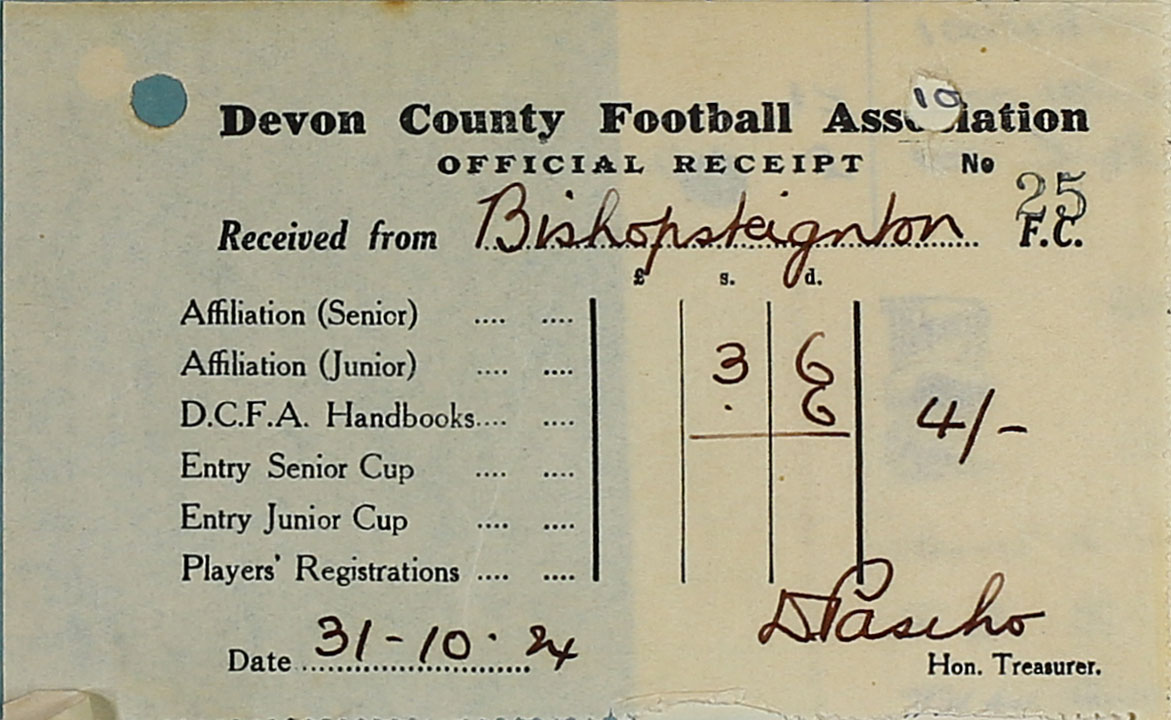 10
Devon County Football Association
OFFICIAL RECEIPT No 25
Received from Bishopsteignton F.C.
£ s. d.
Affiliation (Senior) .... ....
Affiliation (Junior) .... .... 3 6
D.C.F.A. Handbooks.... .... . 6 4/-
Entry Senior Cup .... ....
Entry Junior Cup .... ....
Players' Registrations .... ....
D Pascho
Date 31-10·24
Hon. Treasurer.